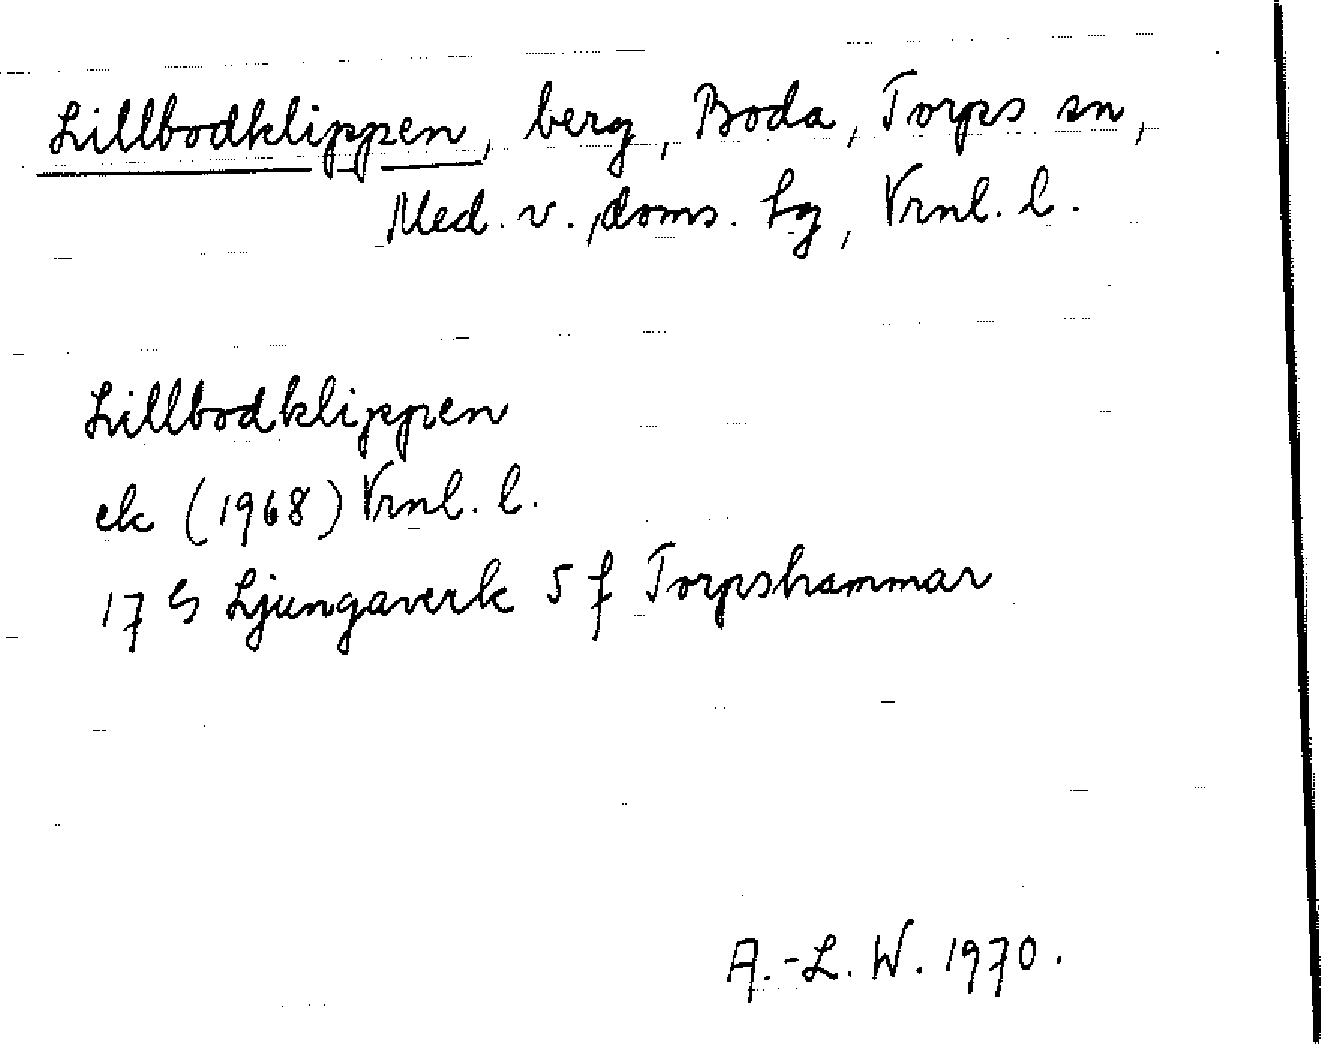 Lillbodklippen, berg, Boda, Torps sn,
Med. v. doms. hg, Vrnl. l.
Lillbodklippen
ek (1968) Vrnl. l.
17 G Ljungaverk 5 f Torpshammar
A.-L. W. 1970.